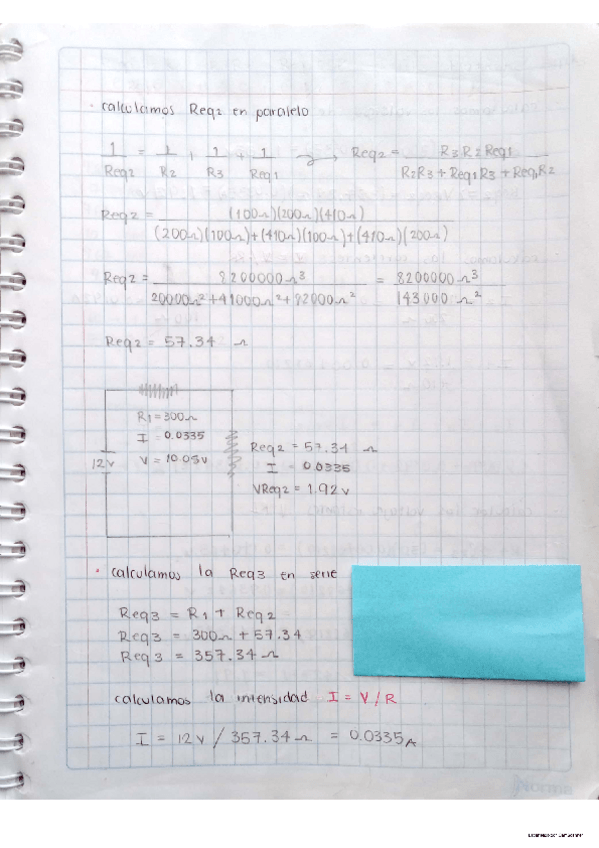 · calculamos Req2 en paralelo
1/Req2 = 1/R2 + 1/R3 + 1/Req1 → Req2 = R3 R2 Req1 / R2R3 + Req1R3 + Req1R2
Req2 = (100Ω)(200Ω)(410Ω) / (200Ω)(100Ω)+(410Ω)(100Ω)+(410Ω)(200Ω)
Req2 = 8200000Ω³ / 20000Ω²+41000Ω²+82000Ω² = 8200000Ω³ / 143000 Ω²
Req2 = 57.34 Ω
R1=300Ω
I = 0.0335
V = 10.05V
12V
Req2 = 57.34 Ω
I = 0.0335
VReq2 = 1.92 V
· calculamos la Req3 en serie
Req3 = R1 + Req2
Req3 = 300Ω + 57.34
Req3 = 357.34 Ω
calculamos la intensidad I = V/R
I = 12V / 357.34Ω = 0.0335A